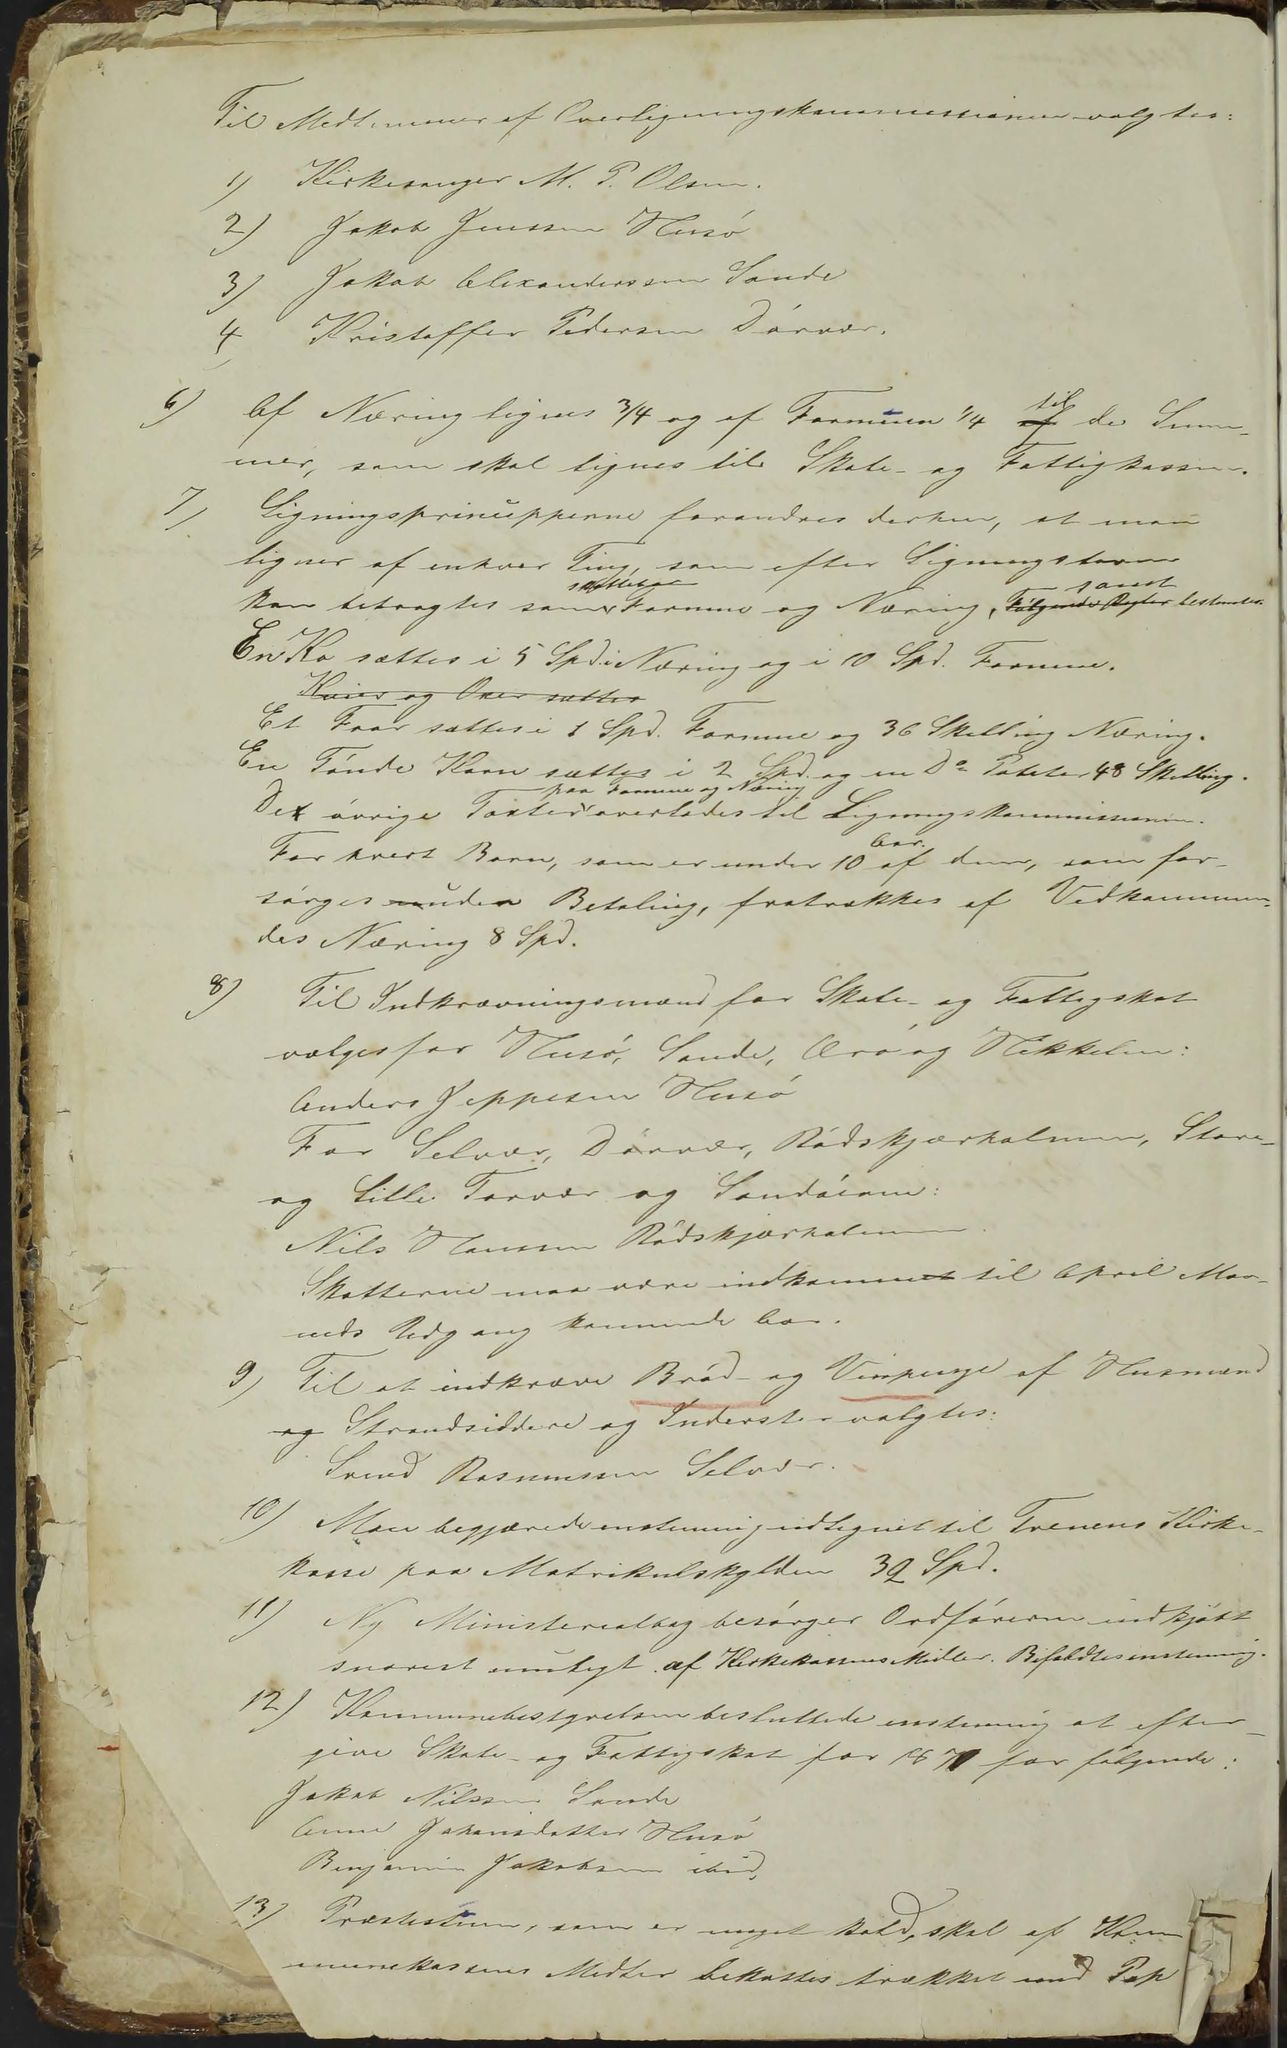 Til Medlemmer af Overligningskommissionen valgtes:
1) Kirkesanger M. P. Olsen.
2) Jakob Jenssen Husö
3) Jakob Alexanderssen Sande
4 Kristoffer Pedersen Dörvær.
6) Af Næring lignes 3/4 og af Formuen 1/4 af til de Sum-
mer, som skal lignes til Skole- og Fattigkassen.
7) Ligningsprincipperne forandres derhen, at man
ligner af enhver Ting, som efter Ligningsloven
skattbar
kan betragtes som Formue og Næring, Følgende Regler bestemtes
En Ko sættes i 5 Spd. i Næring og i 10 Spd. Formue.
Kvier og Oxer sættes
Et Faar sættes i 1 Spd. Formue og 36 Skilling Næring.
En Tönde Korn sættes i 2 Spd. og en Do Poteter 48 Skilling.
paa Formue og Næring
De övrige Taxter overlades til Ligningskommissionen.
Aar.
For hvert Barn, som er under 10 af dem, som for-
sörges uden Betaling, fratrækkes af Vedkommen-
des Næring 8 Spd.
8) Til Indkrævningsmænd for Skole- og Fattigskat
vælges for Husö, Sande, og Nikkelen:
Anders Jeppesen Husö
For Selvær, Dörvær, Rödskjærholmen, Store-
og Lille Torvær og Sandöerne:
Nils Hanssen Rödskjærholmen
Skatterne maa være indkommet til April Maa-
neds Udgang kommende Aar.
9) Til at indkræve Bröd- og Vinpenge af Husmænd
og Strandsiddere og Inderster valgtes:
Svend Rasmussen Selvær.
10) Man begjærede enstemmig udlignet til Trænens Kirke-
kasse paa Matrikulskylden 32 Spd.
11) Ny Ministerialbog besörger Ordföreren indkjöbt
snarest muligt af Kirkekassens Midler. Bifaldtes enstemmig.
12) Kommunebestyrelsen besluttede enstemmig at efter-
give Skole- og Fattigskat for 1871 for fölgende:
Jakob Nilssen Sande
Anne Johansdatter Husö
Benjamin Jakobsen ibid.
13) Præstestuen, som er meget kold, skal af Kom
munekassens Midler bekostes trækket med Pap